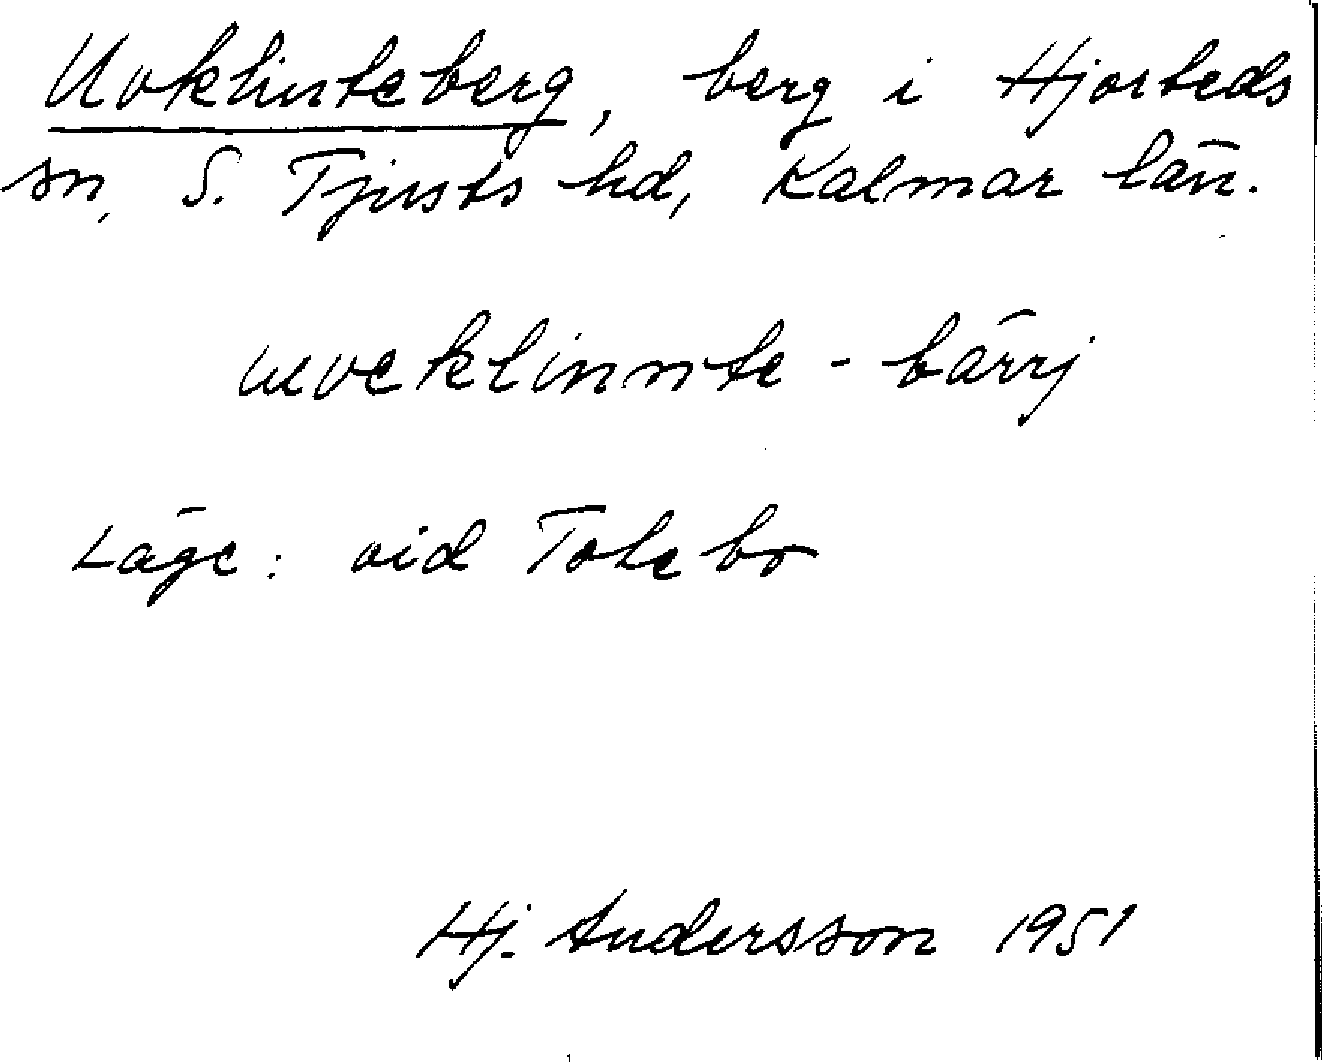 Uvklinteberg, berg i Hjorteds
sn, S. Tjusts hd, Kalmar län.
uveklinnte-bärrj
Läge: vid Totebo
Hj. Andersson 1951